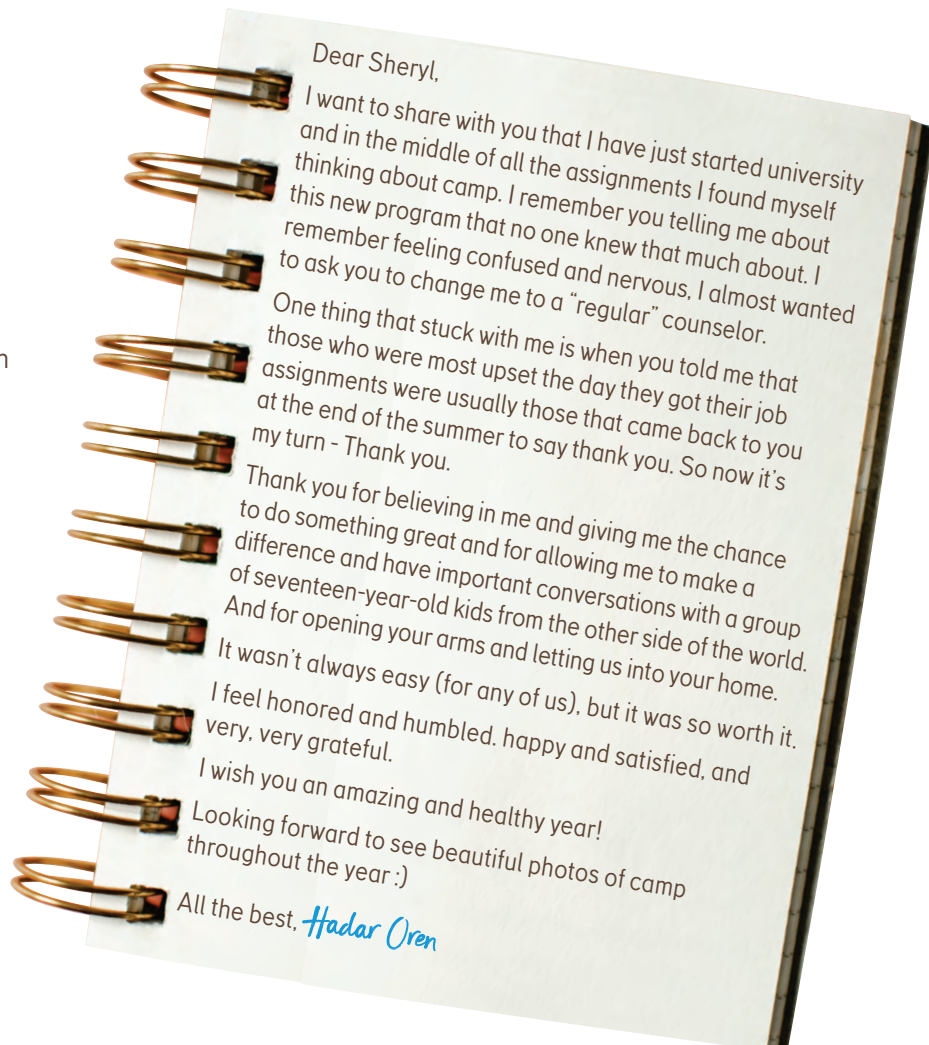 Dear Sheryl,
I want to share with you that I have just started university
and in the middle of all the assignments I found myself
thinking about camp. I remember you telling me about
this new program that no one knew that much about. I
remember feeling confused and nervous, I almost wanted
to ask you to change me to a “regular” counselor.
One thing that stuck with me is when you told me that
those who were most upset the day they got their job
assignments were usually those that came back to you
at the end of the summer to say thank you. So now it’s
my turn - Thank you.
Thank you for believing in me and giving me the chance
to do something great and for allowing me to make a
difference and have important conversations with a group
of seventeen-year-old kids from the other side of the world.
And for opening your arms and letting us into your home.
It wasn’t always easy (for any of us), but it was so worth it.
I feel honored and humbled. happy and satisfied, and
very, very grateful.
I wish you an amazing and healthy year!
Looking forward to see beautiful photos of camp
throughout the year :)
All the best, Hadar Oren